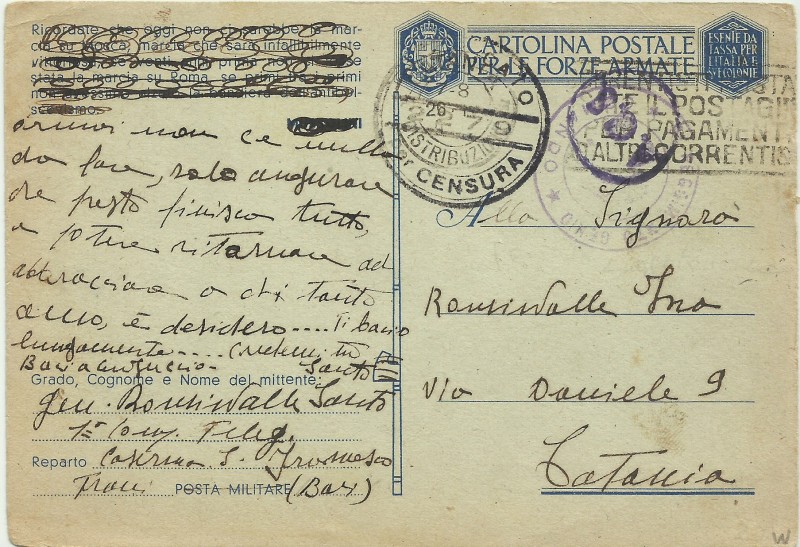 Ricordate che oggi non ci sarebbe la mar-
cia su Mosca, marcia che sarà infallibilmente
se prima non
stata la marcia su Roma, se primi tra i primi
non avessimo la bandiera dell'antibol-
scevismo.
ormai non c'è nulla
da fare, solo augurare
che presto finisca tutto,
e potere ritornare ad
abbracciare a chi tanto
amo, e desidero.... Ti bacio
lungamente....
Santo
Grado, Cognome e Nome del mittente:
Gen. Roncisvalle Santo
1ª Comp. Teleg.
Reparto Caserma S. Francesco
Trani POSTA MILITARE (Bari)
CARTOLINA POSTALE
PER LE FORZE ARMATE
ESENTE DA
TASSA PER
L'ITALIA E
SUE COLONIE
DISTRIBUZIONE
CENSURA
IL POSTAGIRO
PAGAMENTI
ALTRI CORRENTISTI
GENIO
Alla Signora
Roncisvalle Ina
Via Daniele 9
Catania
W